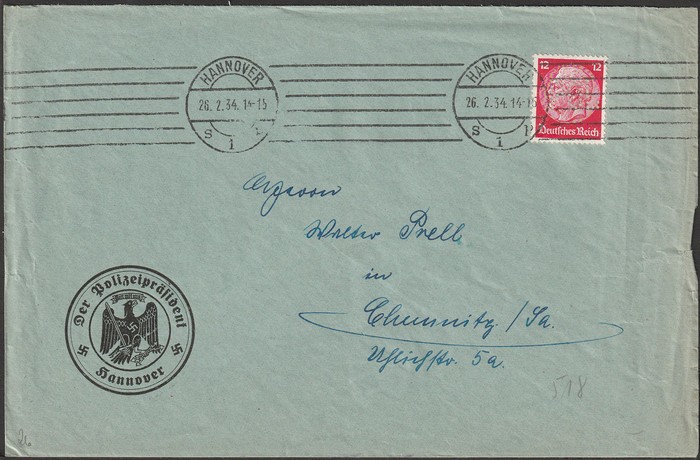 HANNOVER
26.2.34.14-15
s i
HANNOVER
26.2.34.14-15
s i
12 12
Deutsches Reich
Walter Prell
in
Chemnitz/Sa.
Uhlichstr. 5a.
Der Polizeipräsident
Hannover
518